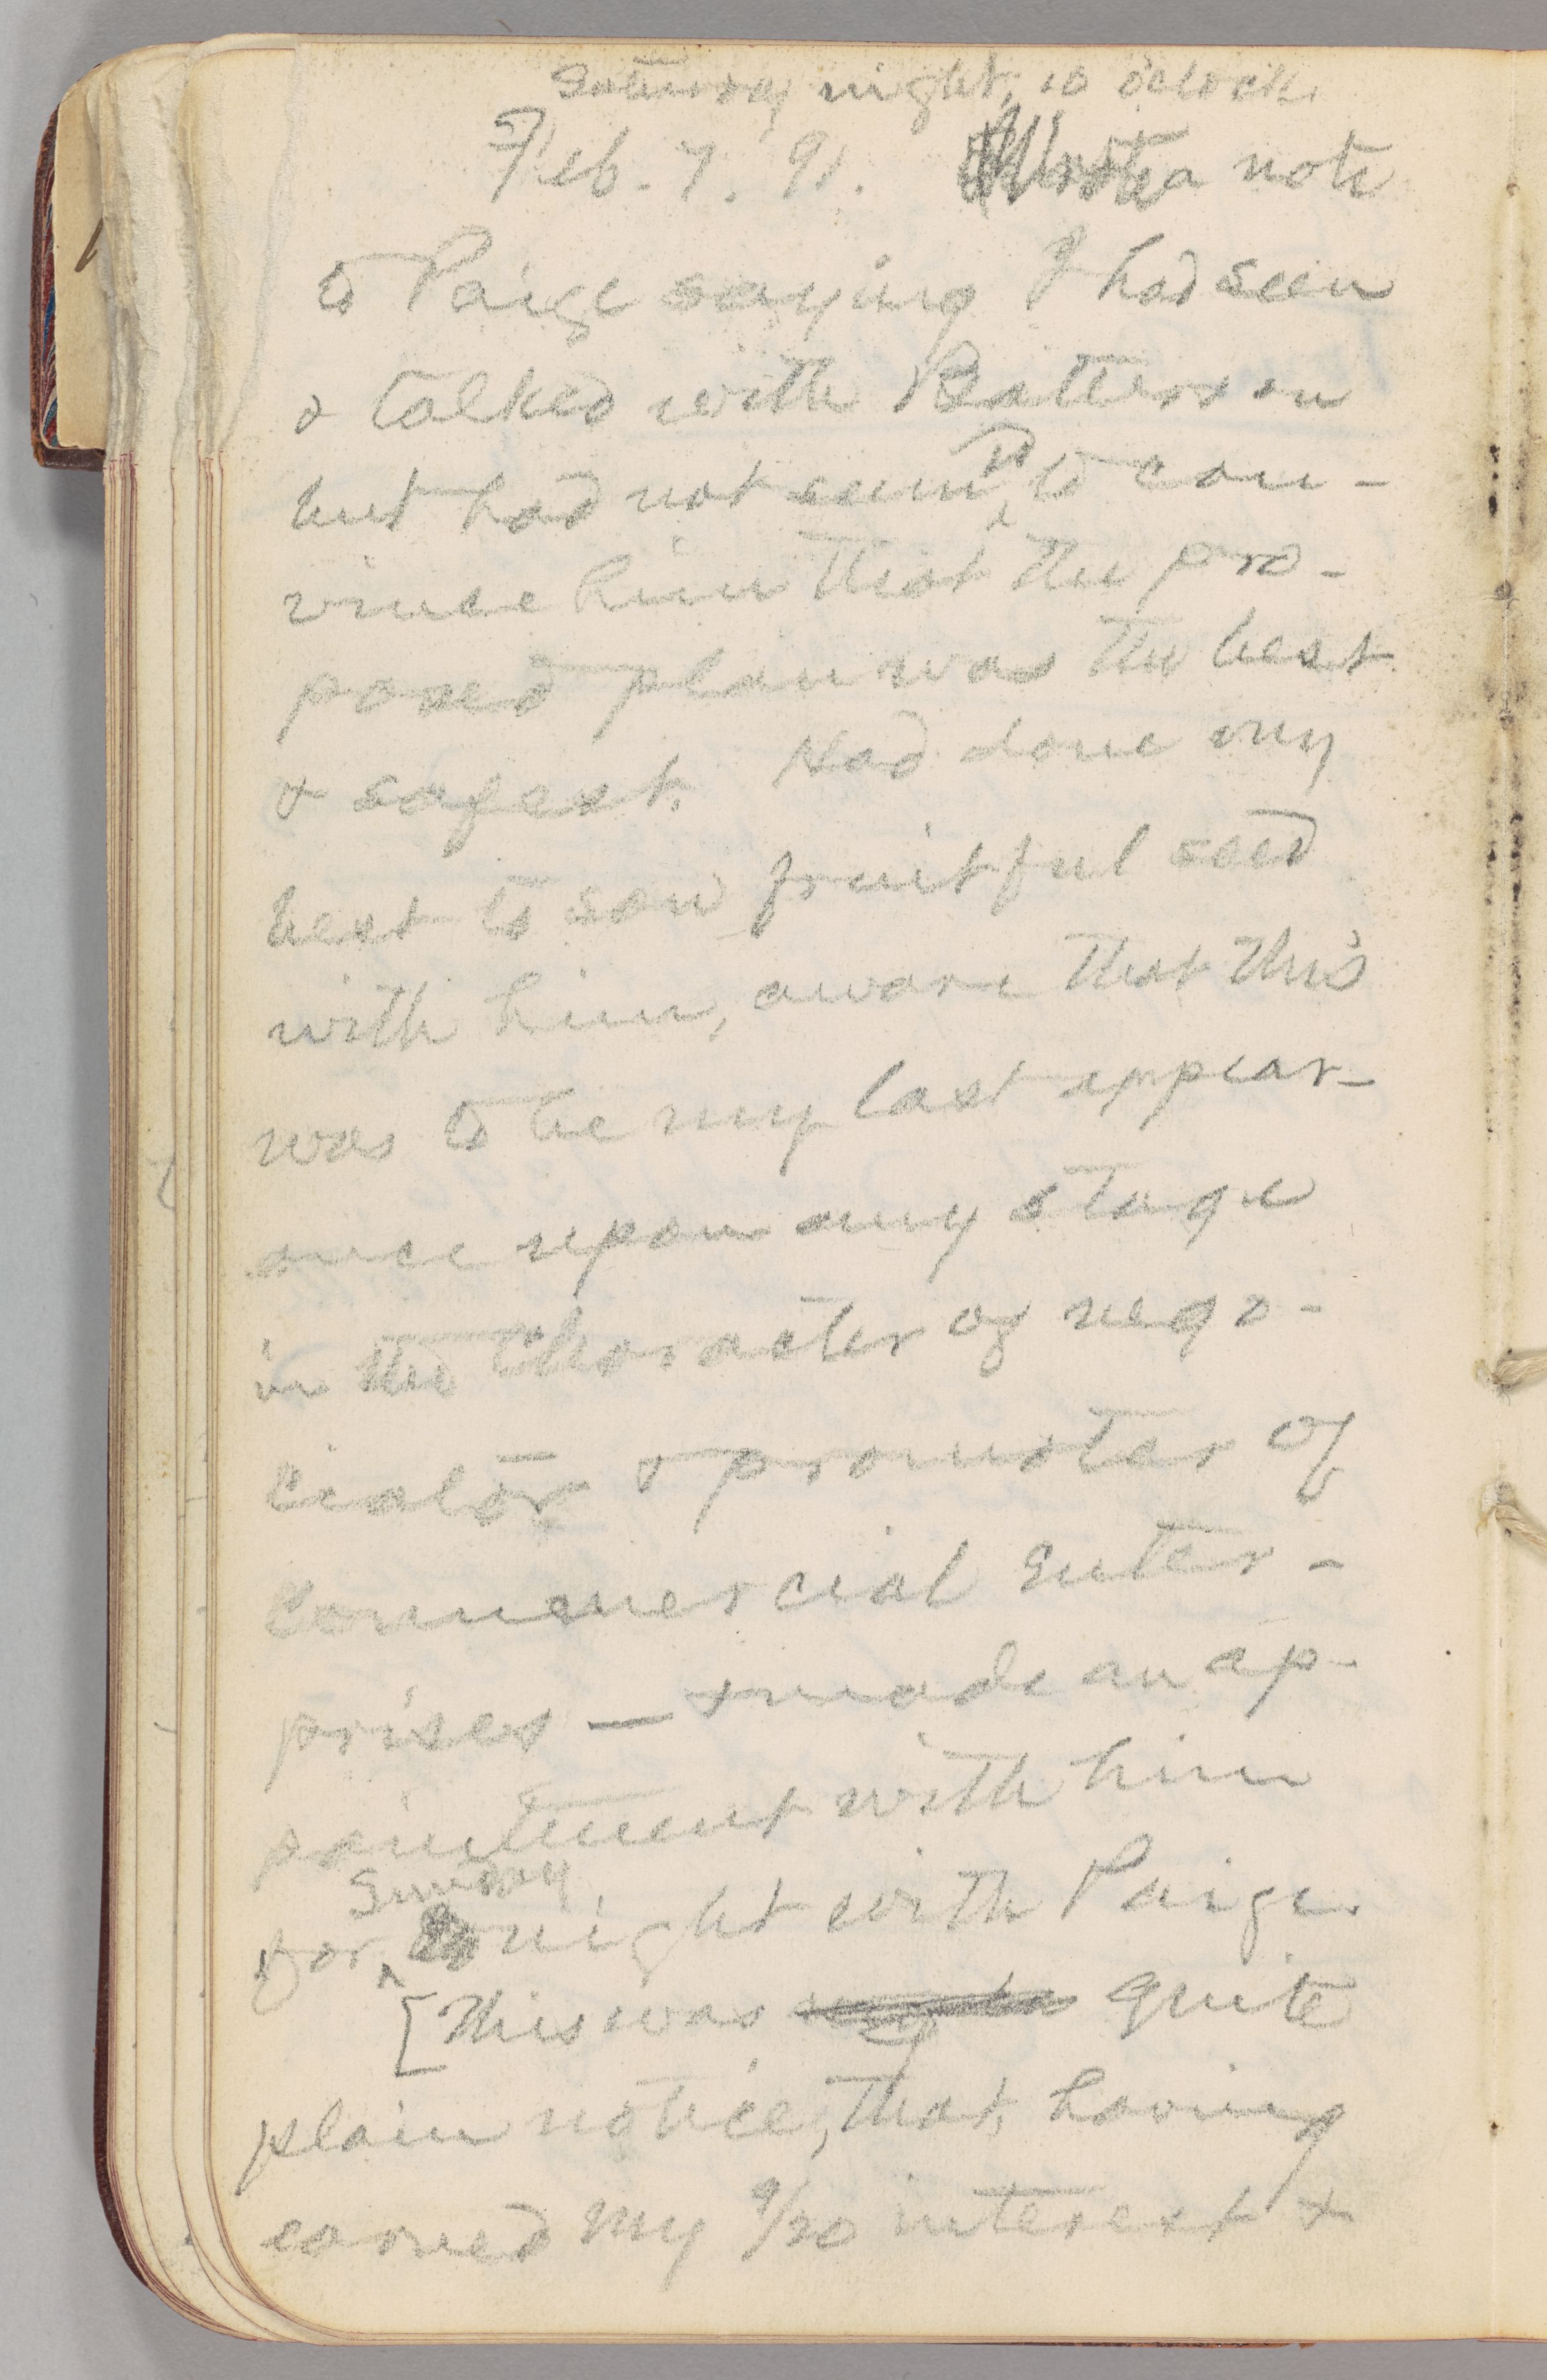 Saturday night, 10 o'clock.
Feb. 7. '91. Wrote a note
to Paige saying I had seen
& talked with Batterson
but had not seem'd to con-
vince him that the pro-
posed plan was the best
& safest. Had done my
best to sow fruitful seed
with him, aware that this
was to be my last appear-
ance upon any stage
in the character of nego-
ciator & promoter of
commercial enter-
prises — & made an ap-
pointment with him
for Sunday night with Paige.
[This was quite
plain notice, that, having
earned my 9/20 interest &